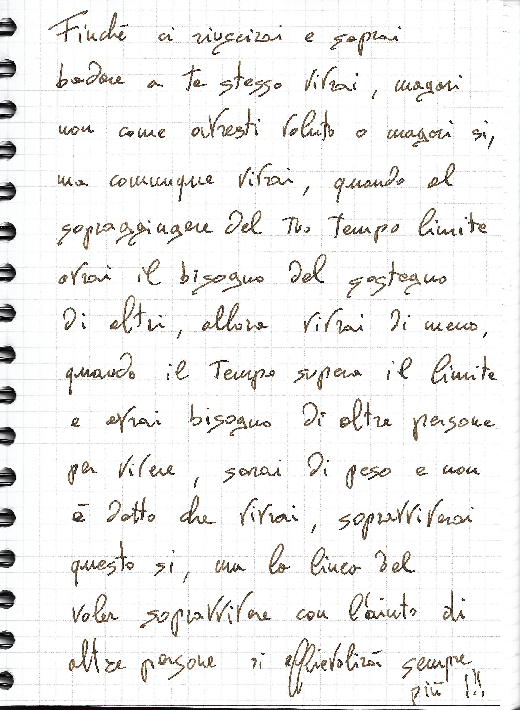 Finché ci riuscirai e saprai
badare a te stesso vivrai, magari
non come avresti voluto o magari si,
ma comunque vivrai, quando al
sopraggiungere del tuo tempo limite
avrai il bisogno del sostegno
di altri, allora vivrai di meno,
quando il tempo supera il limite
e avrai bisogno di altre persone
per vivere, sarai di peso e non
è detto che vivrai, sopravviverai
questo si, ma la linea del
voler sopravvivere con l'aiuto di
altre persone si affievolirà sempre
più !!!